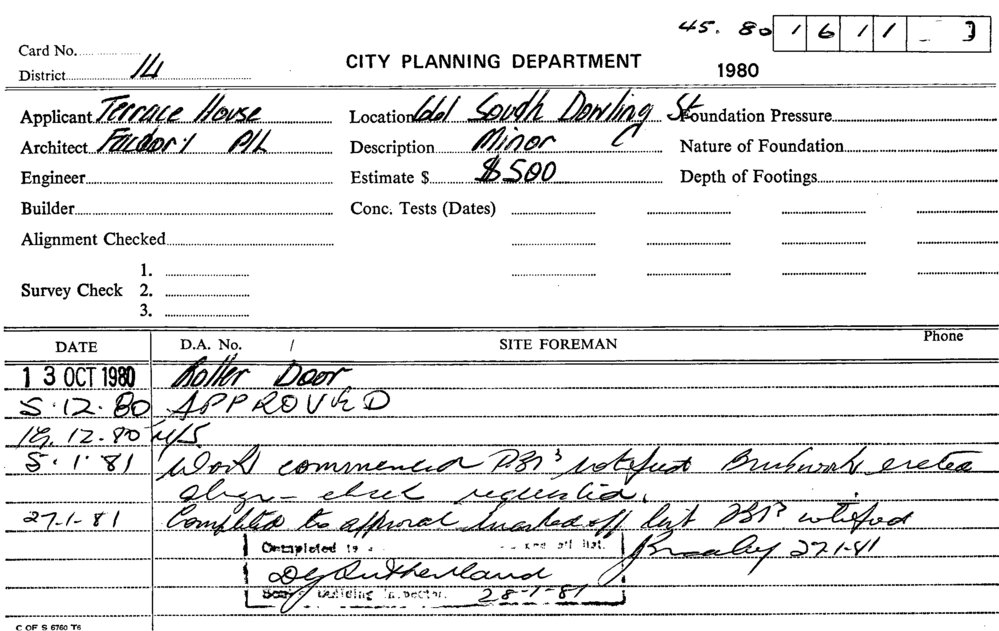 45. 80 1 6 1 1
Card No.
District 14
CITY PLANNING DEPARTMENT
1980
Applicant Terrace House
Location 661 South Dowling St
Foundation Pressure
Architect Factory P/L
Description Minor C
Nature of Foundation
Engineer
Estimate $ $500
Depth of Footings
Builder
Conc. Tests (Dates)
Alignment Checked
1.
Survey Check 2.
3.
DATE D.A. No. / SITE FOREMAN Phone
13 OCT 1980 Roller Door
5.12.80 APPROVED
12.80 N/S
5.1.81 Work commenced notified Brickwork erected
align- check requested.
27-1-81 Completed to approval marked off list notified
27.1.81
Completed to off list.
DG Sutherland
Building Inspector. 28-1-81
C OF S 6760 T6